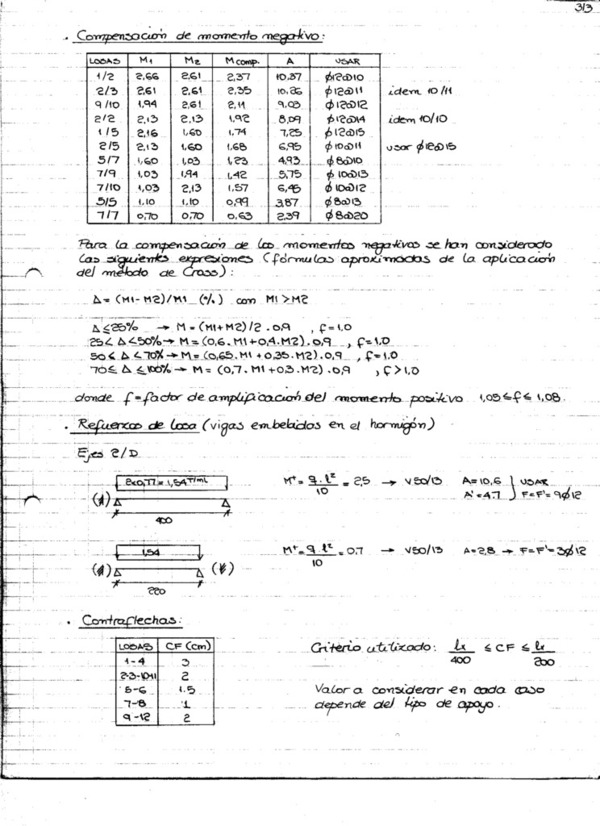 3/3
. Compensación de momento negativo:
LOSAS M1 M2 M comp. A USAR
1/2 2,66 2,61 2,37 10,37 ϕ12@10
2/3 2,61 2,61 2,35 10,26 ϕ12@11 idem 10/11
9/10 1,94 2,61 2,11 9,03 ϕ12@12
2/2 2,13 2,13 1,92 8,09 ϕ12@14 idem 10/10
1/5 2,16 1,60 1,74 7,25 ϕ12@15
2/5 2,13 1,60 1,68 6,95 ϕ10@11 usar ϕ12@15
5/7 1,60 1,03 1,23 4,93 ϕ8@10
7/9 1,03 1,94 1,42 5,75 ϕ10@13
7/10 1,03 2,13 1,57 6,45 ϕ10@12
5/5 1,10 1,10 0,99 3,87 ϕ8@13
7/7 0,70 0,70 0,63 2,39 ϕ8@20
Para la compensación de los momentos negativos se han considerado
las siguientes expresiones (fórmulas aproximadas de la aplicación
del método de Cross):
Δ = (M1-M2)/M1 (%) con M1 > M2
Δ ≤ 25% → M = (M1+M2)/2 . 0,9 , f=1,0
25 < Δ < 50% → M = (0,6 . M1 + 0,4 . M2) . 0,9 , f=1,0
50 ≤ Δ < 70% → M = (0,65 . M1 + 0,35 . M2) . 0,9 , f=1,0
70 ≤ Δ ≤ 100% → M = (0,7 . M1 + 0,3 . M2) . 0,9 , f > 1,0
donde f = factor de amplificación del momento positivo 1,05 ≤ f ≤ 1,08.
. Refuerzos de losa (vigas embebidas en el hormigón)
Ejes 2/D
2x0,77 = 1,54 T/ml M⁺ = q . l² / 10 = 2,5 → V50/13 A=10,6 A'=4,7 } USAR F=F'=9ϕ12
(A)
400
1,54 M⁺ = q . l² / 10 = 0,7 → V50/13 A=2,8 → F=F'=3ϕ12
220
. Contraflechas:
LOSAS CF (cm) Criterio utilizado: lx / 400 ≤ CF ≤ lx / 200
1-4 3
2-3-10-11 2
5-6 1.5 Valor a considerar en cada caso
7-8 1 depende del tipo de apoyo.
9-12 2